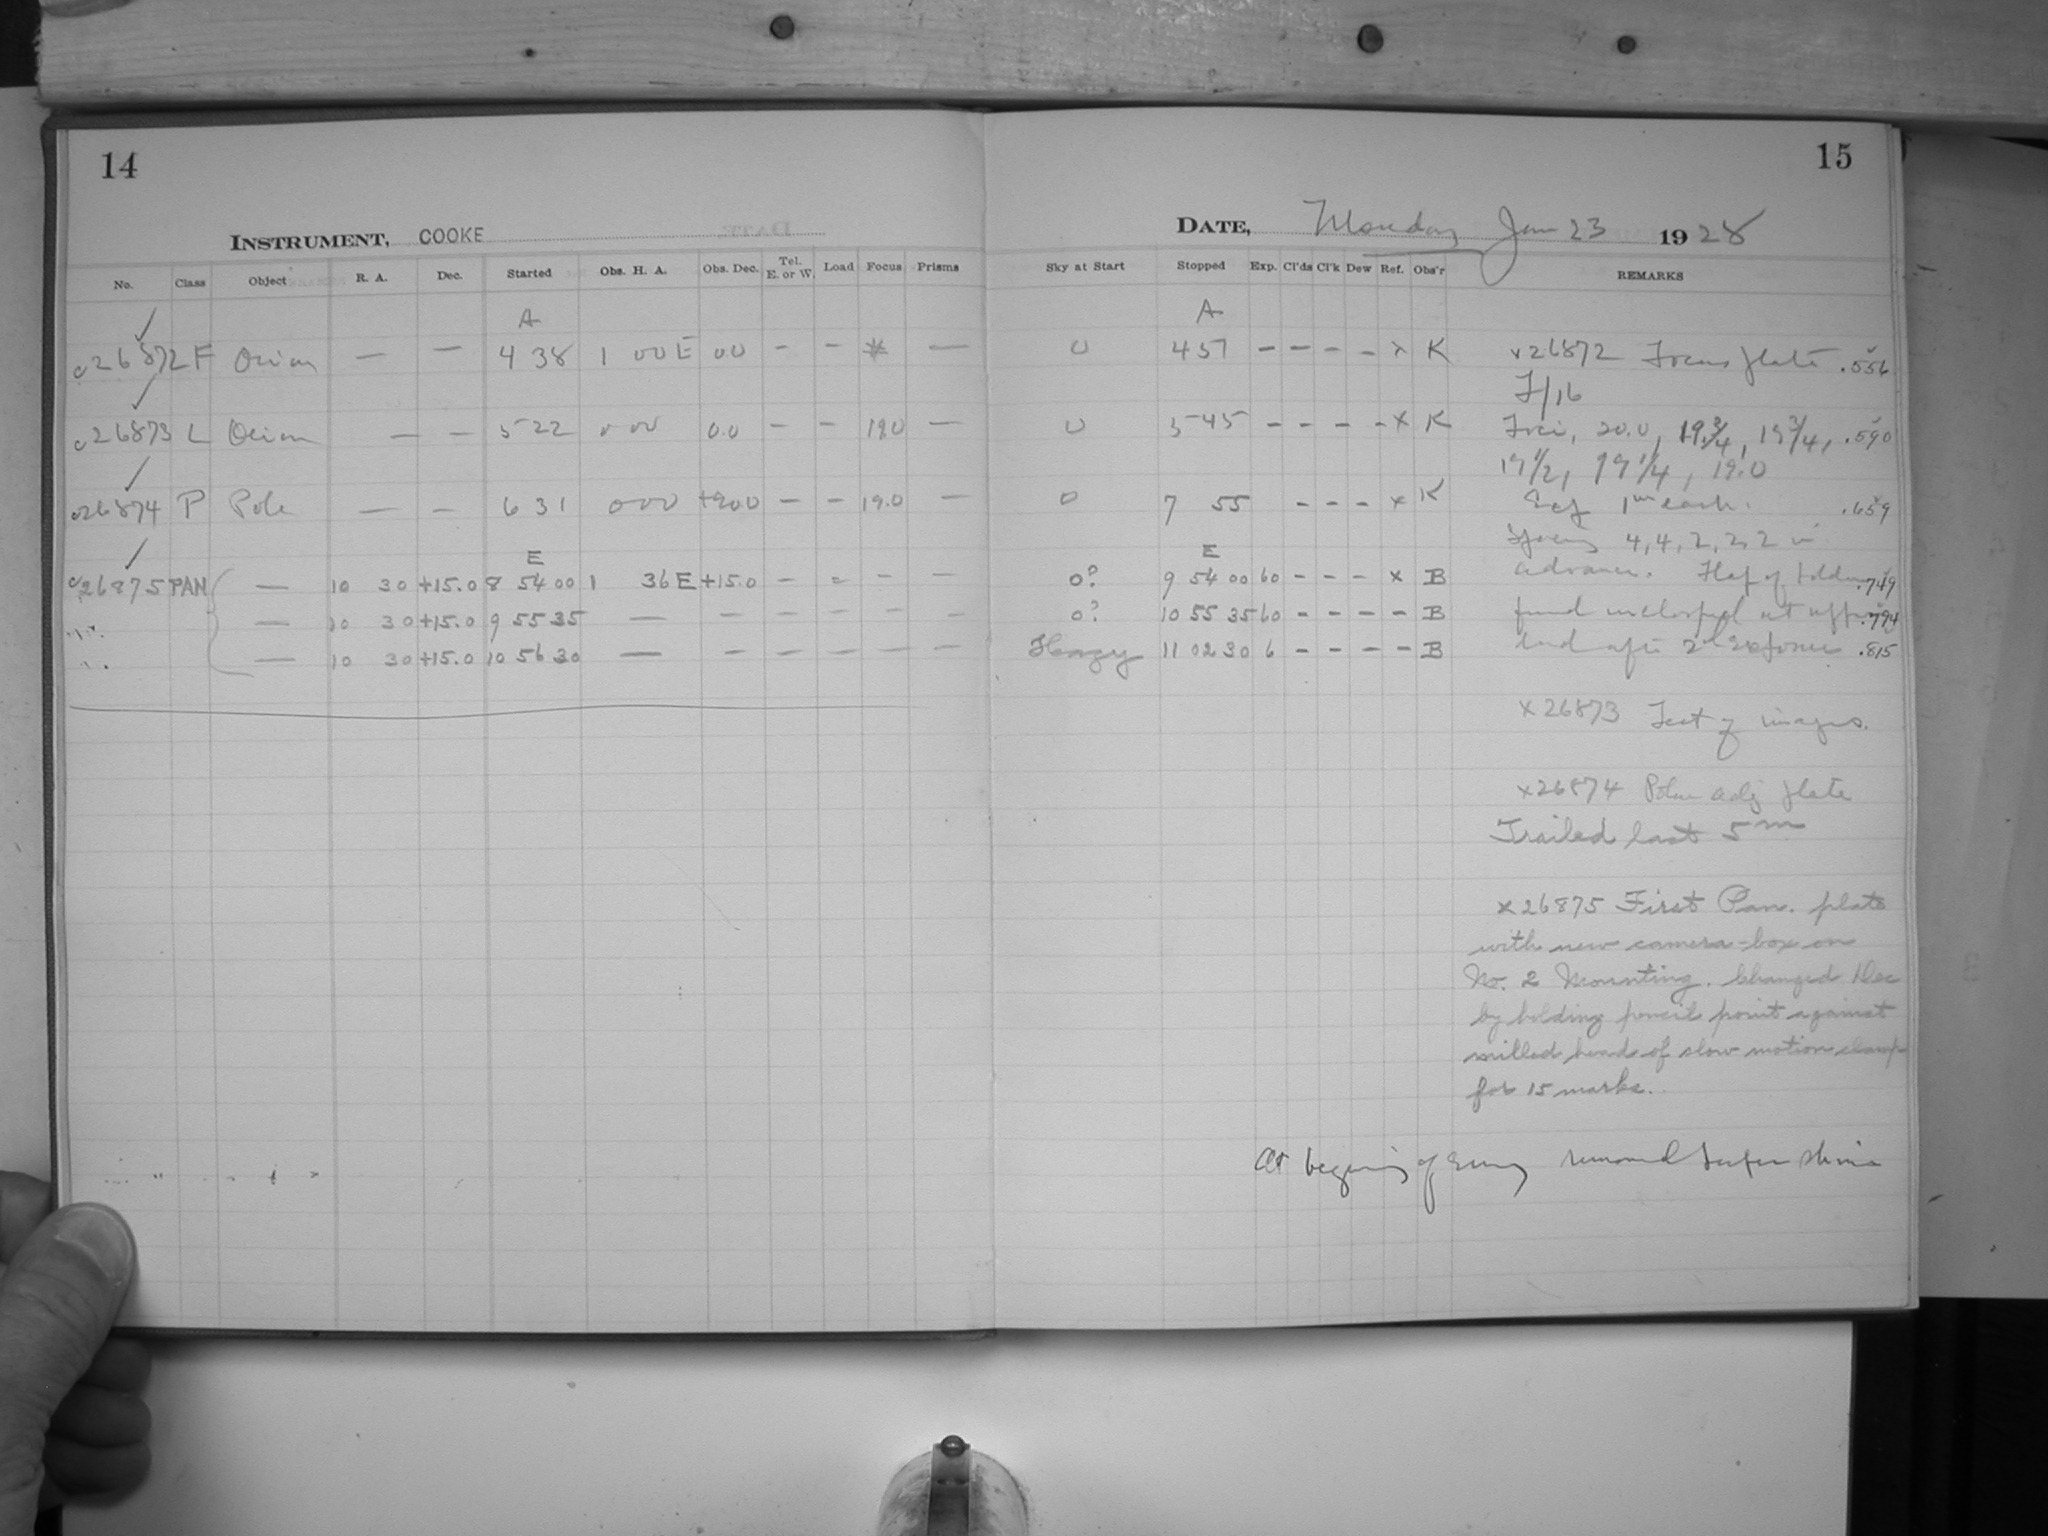 14
15
INSTRUMENT, COOKE
DATE, Monday Jan 23 1928
No. Class Object R. A. Dec. Started Obs. H. A. Obs. Dec. Tel. E. or W. Load Focus Prisms Sky at Start Stopped Exp. Cl'ds Cl'k Dew Ref. Obs'r REMARKS
A A
c26872 F Orion — — 4 38 1 00 E 00 - - * — 0 4 57 - - - - x K x26872 Focus plate .556
F/16
c26873 L Orion — — 5 22 0 00 0.0 - - 19.0 — 0 5 45 - - - - x K Foci, 20.0, 19 3/4, 19 3/4, .590
19 1/2, 19 1/4, 19.0
c26874 P Pole — — 6 31 0 00 +90.0 - - 19.0 — 0 7 55 - - - x K 1m each. .659
E E 4, 4, 2, 2, 2 in
c26875 PAN — 10 30 +15.0 8 54 00 1 36 E +15.0 - - - - 0? 9 54 00 60 - - - x B advance. Flap of holder .749
— 10 30 +15.0 9 55 35 — - - - - - 0? 10 55 35 60 - - - - B found unclosed at upper .794
— 10 30 +15.0 10 56 30 — - - - - - Hazy 11 02 30 6 - - - - B end after 2nd exposure .815
x26873 Test of images.
x26874 Polar adj plate
Trailed last 5m
x26875 First Pan. plate
with new camera-box on
No. 2 Mounting. Changed Dec
by holding pencil point against
milled head of slow motion clamp
for 15 marks.
At begining of removed